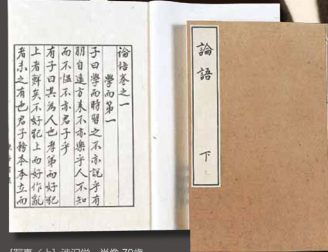 論語卷之一
學而第一
子曰學而時習之不亦說乎有
朋自遠方來不亦樂乎人不知
而不慍不亦君子乎
有子曰其為人也孝弟而好犯
上者鮮矣不好犯上而好作亂
者未之有也君子務本本立而
論語 下